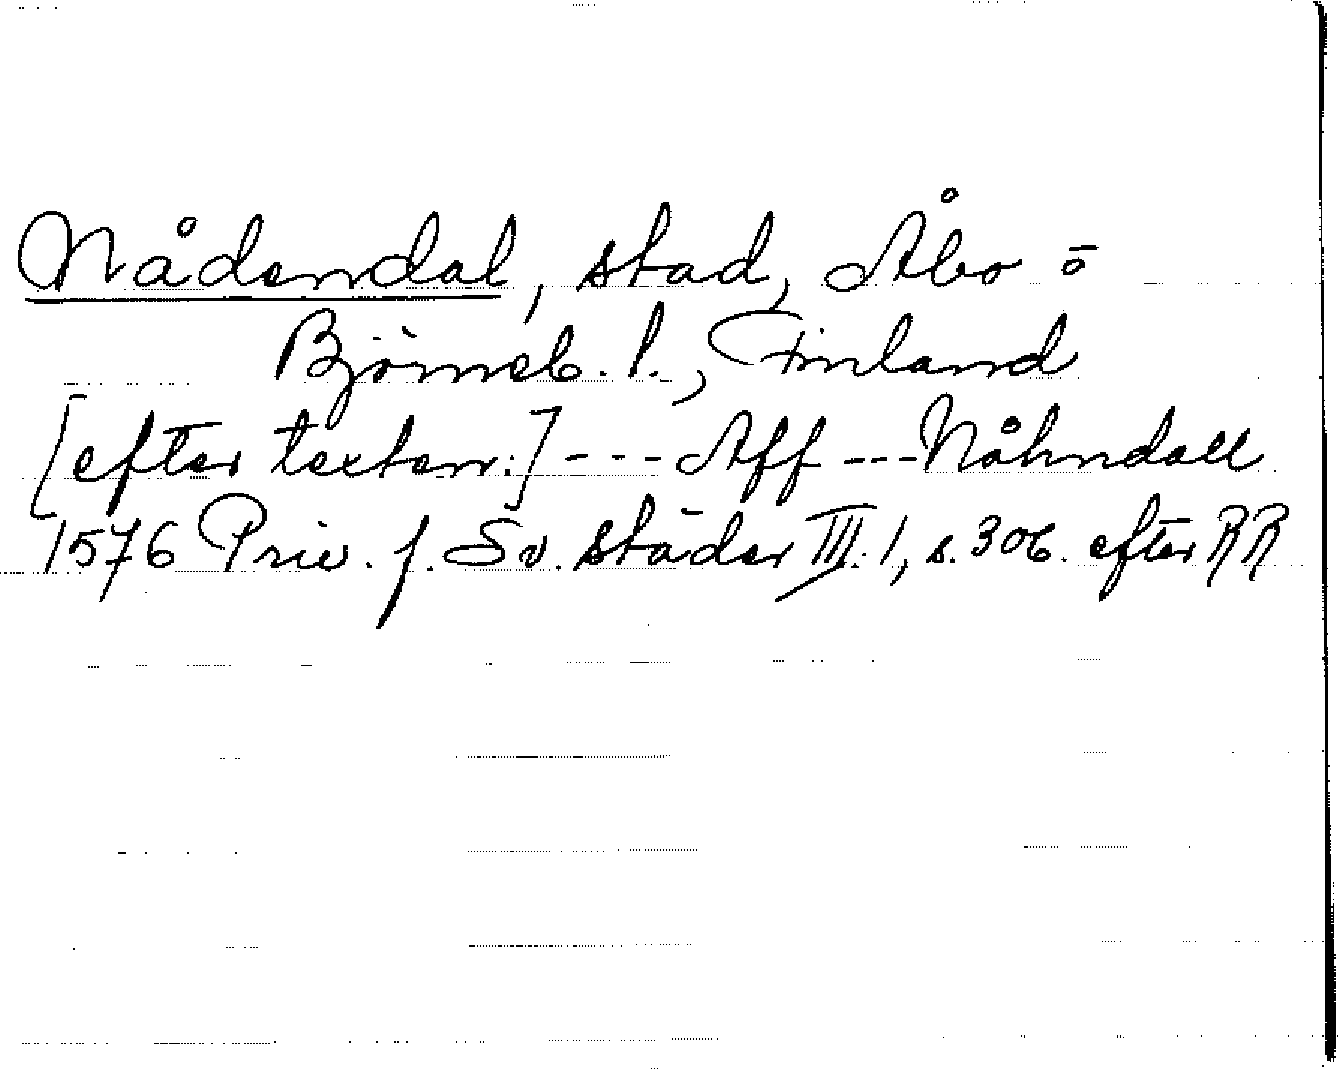 Nådendal, stad, Åbo o
Björneb. l., Finland
[efter texten:] --- Aff --- Nåhndall
1576 Priv. f. Sv. städer III: 1, s. 306. efter RR